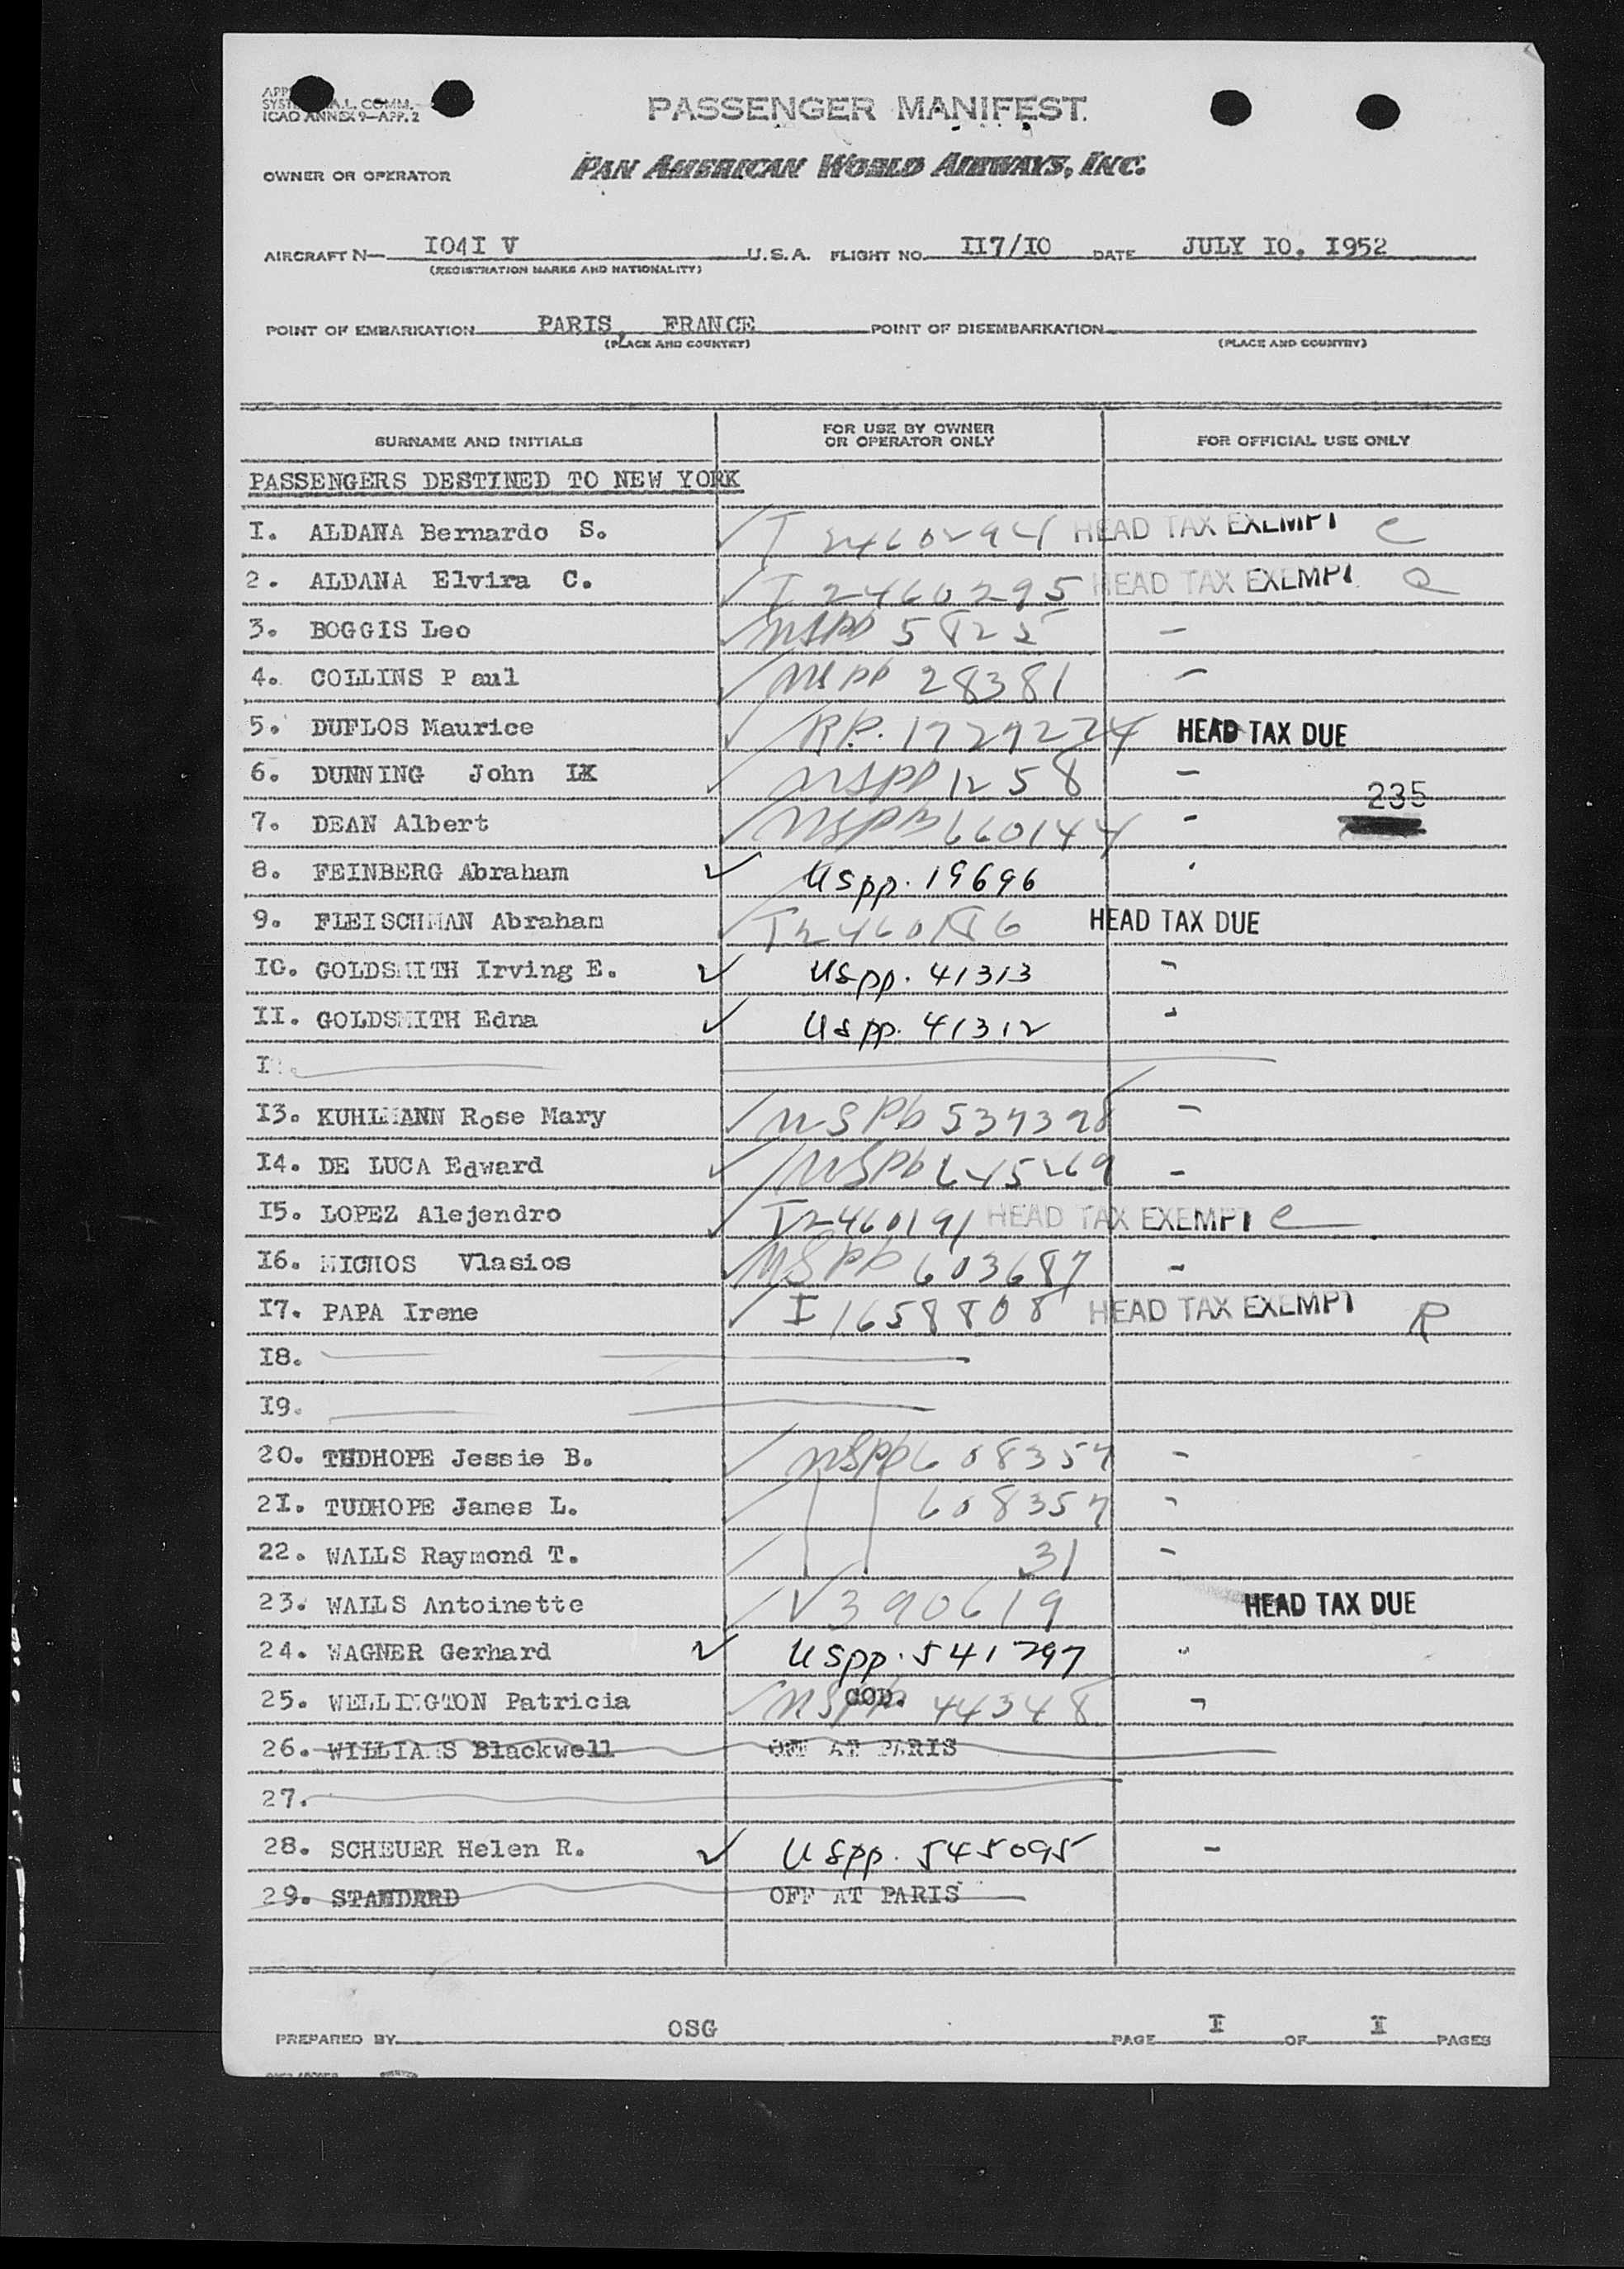 SYST A.L. COMM.
ICAO ANNEX 9—APP. 2
PASSENGER MANIFEST
OWNER OR OPERATOR PAN AMERICAN WORLD AIRWAYS, INC.
AIRCRAFT N— I04I V U.S.A. FLIGHT NO. II7/I0 DATE JULY I0. I952
(REGISTRATION MARKS AND NATIONALITY)
POINT OF EMBARKATION PARIS, FRANCE POINT OF DISEMBARKATION
(PLACE AND COUNTRY) (PLACE AND COUNTRY)
SURNAME AND INITIALS FOR USE BY OWNER OR OPERATOR ONLY FOR OFFICIAL USE ONLY
PASSENGERS DESTINED TO NEW YORK
I. ALDANA Bernardo S. I 2460294 HEAD TAX EXEMPT C
2. ALDANA Elvira C. I 2460295 HEAD TAX EXEMPT
3. BOGGIS Leo USPP 5825 –
4. COLLINS P aul USPP 28381 –
5. DUFLOS Maurice RP. 1729224 HEAD TAX DUE
6. DUNNING John USPP 1258 –
235
7. DEAN Albert 660144 -
8. FEINBERG Abraham USpp. 19696
9. FLEISCHMAN Abraham HEAD TAX DUE
I0. GOLDSMITH Irving E. USpp. 41313 -
II. GOLDSMITH Edna USpp. 41312 -
I3. KUHLMANN Rose Mary USPP 537398 –
I4. DE LUCA Edward USPP 645269 –
I5. LOPEZ Alejendro I2460191 HEAD TAX EXEMPT C
I6. MICHOS Vlasios USPP 603687 -
I7. PAPA Irene I 1658808 HEAD TAX EXEMPT R
I8.
I9.
20. TUDHOPE Jessie B. USPP 608357 -
2I. TUDHOPE James L. 608357 -
22. WALLS Raymond T. 31 -
23. WALLS Antoinette V390619 HEAD TAX DUE
24. WAGNER Gerhard USpp. 541797 "
25. WELLINGTON Patricia USPP COD. 44348 -
26. WILLIAMS Blackwell OFF AT PARIS
27.
28. SCHEUER Helen R. USpp. 545095 -
29. STANDERD OFF AT PARIS
PREPARED BY OSG PAGE I OF I PAGES